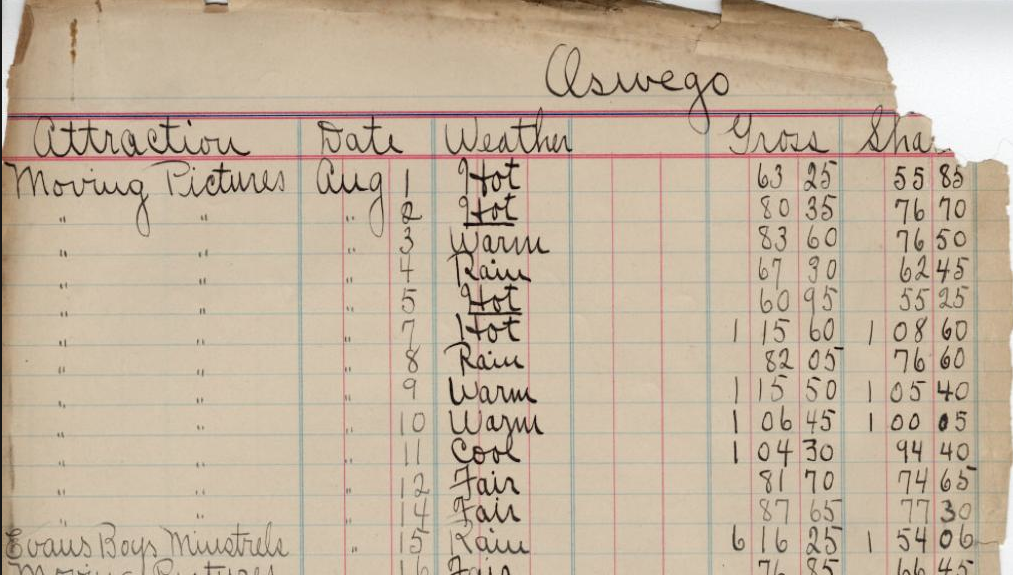 Oswego
Attraction Date Weather Gross Sha
Moving Pictures Aug 1 Hot 63 25 55 85
" " " 2 Hot 80 35 76 70
" " " 3 Warm 83 60 76 50
" " " 4 Rain 67 90 62 45
" " " 5 Hot 60 95 55 25
" " " 7 Hot 1 15 60 1 08 60
" " " 8 Rain 82 05 76 60
" " " 9 Warm 1 15 50 1 05 40
" " " 10 Warm 1 06 45 1 00 05
" " " 11 Cool 1 04 30 94 40
" " " 12 Fair 81 70 74 65
" " " 14 Fair 87 65 77 30
Evans Boys Minstrels " 15 Rain 6 16 25 1 54 06
Moving Pictures 16 Fair 76 85 66 45